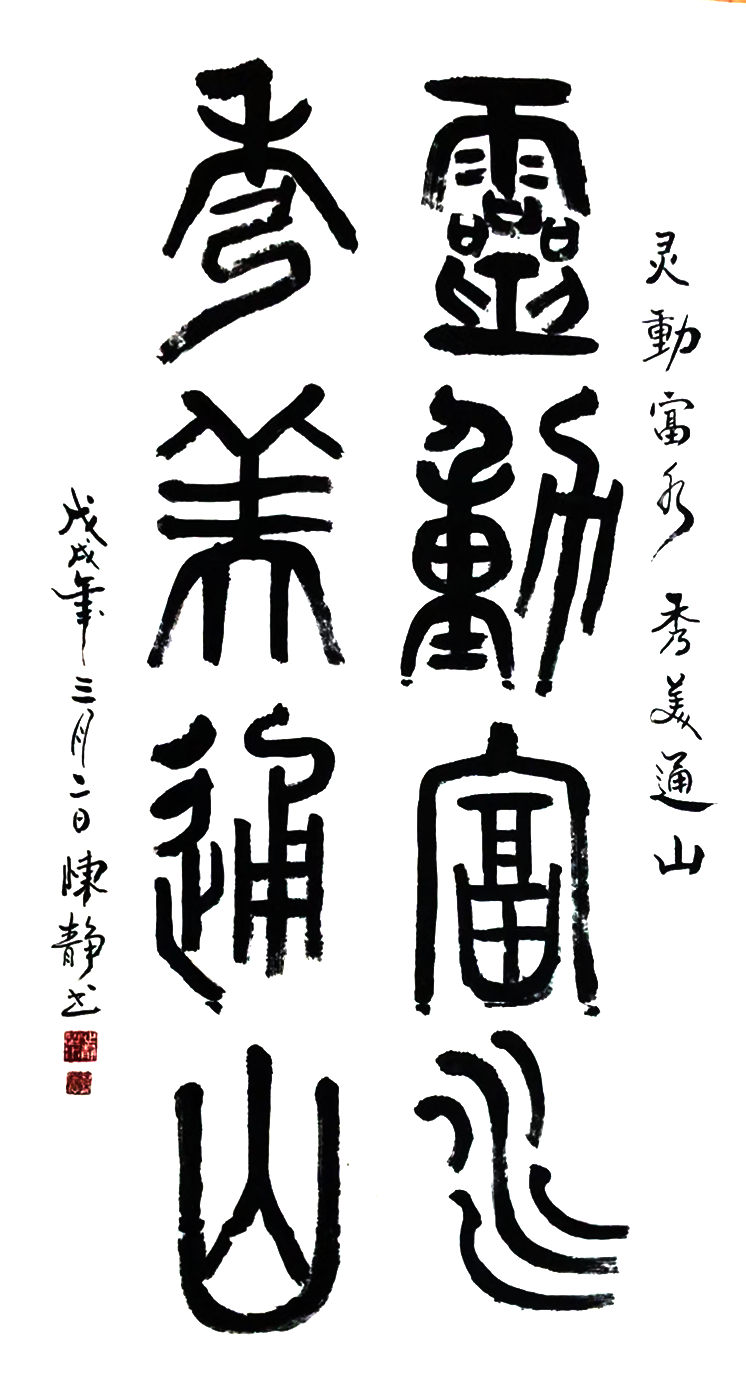 灵動富水 秀美通山
靈動富水
秀美通山
戊戌年三月二日 陳静书